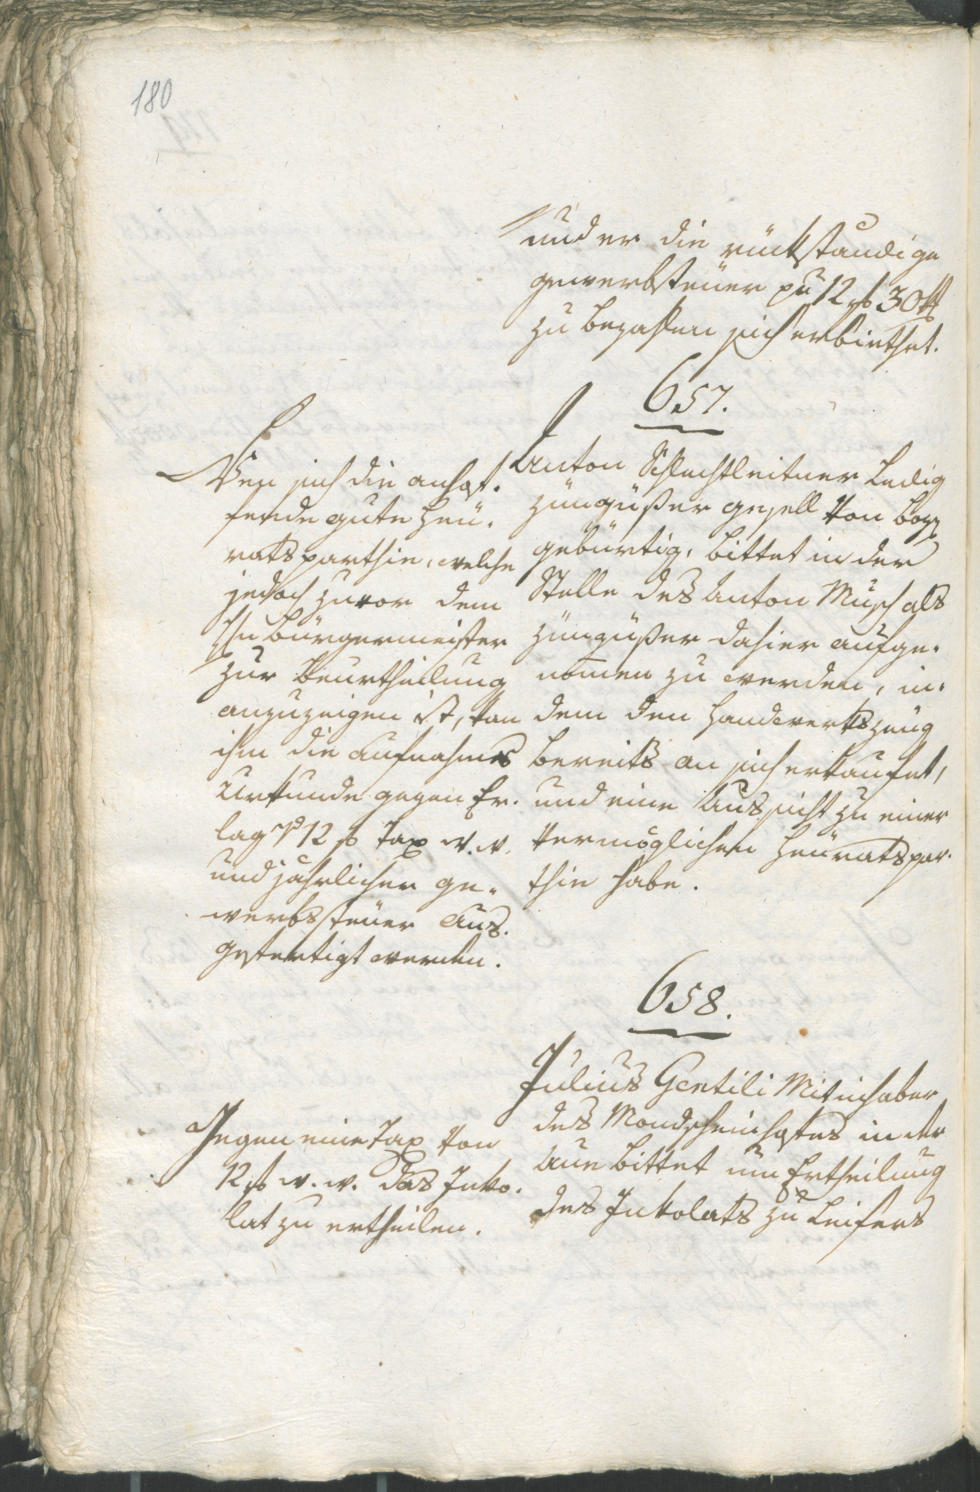 180
und er die rückständige
gewerbsteuer pr 12 f 30 x
zu bezahlen sich erbiethet.
657.
Anton Schlechtleitner ledig
Züngüßer gesell von Boz
gebürtig, bittet in der
Stelle des Anton Musch als
Zingüßer dahier aufge-
nomen zu werden, in-
dem den Handwerkszeug
bereits an sich erkaufet,
und eine Aussicht zu einer
vermöglichen Heuratspar-
thie habe.
Wen sich die anhof-
fende gute Heu-
rats parthie, welche
jedoch zuvor dem
Hn Bürgermeister
zur Beurtheilung
anzuzeigen ist, kan
ihm die Aufnahms
Urkunde gegen Er-
lag 12 f Tax w. w.
und jährlicher ge-
werbssteuer aus-
gefertigt werden.
658.
Julius Gentili Mitinhaber
des Mondscheinhofes in der
Aue bittet um Ertheilung
des Inkolats zu Leifers
Gegen eine Tax von
12 f w. w. das Inko-
lat zu ertheilen.